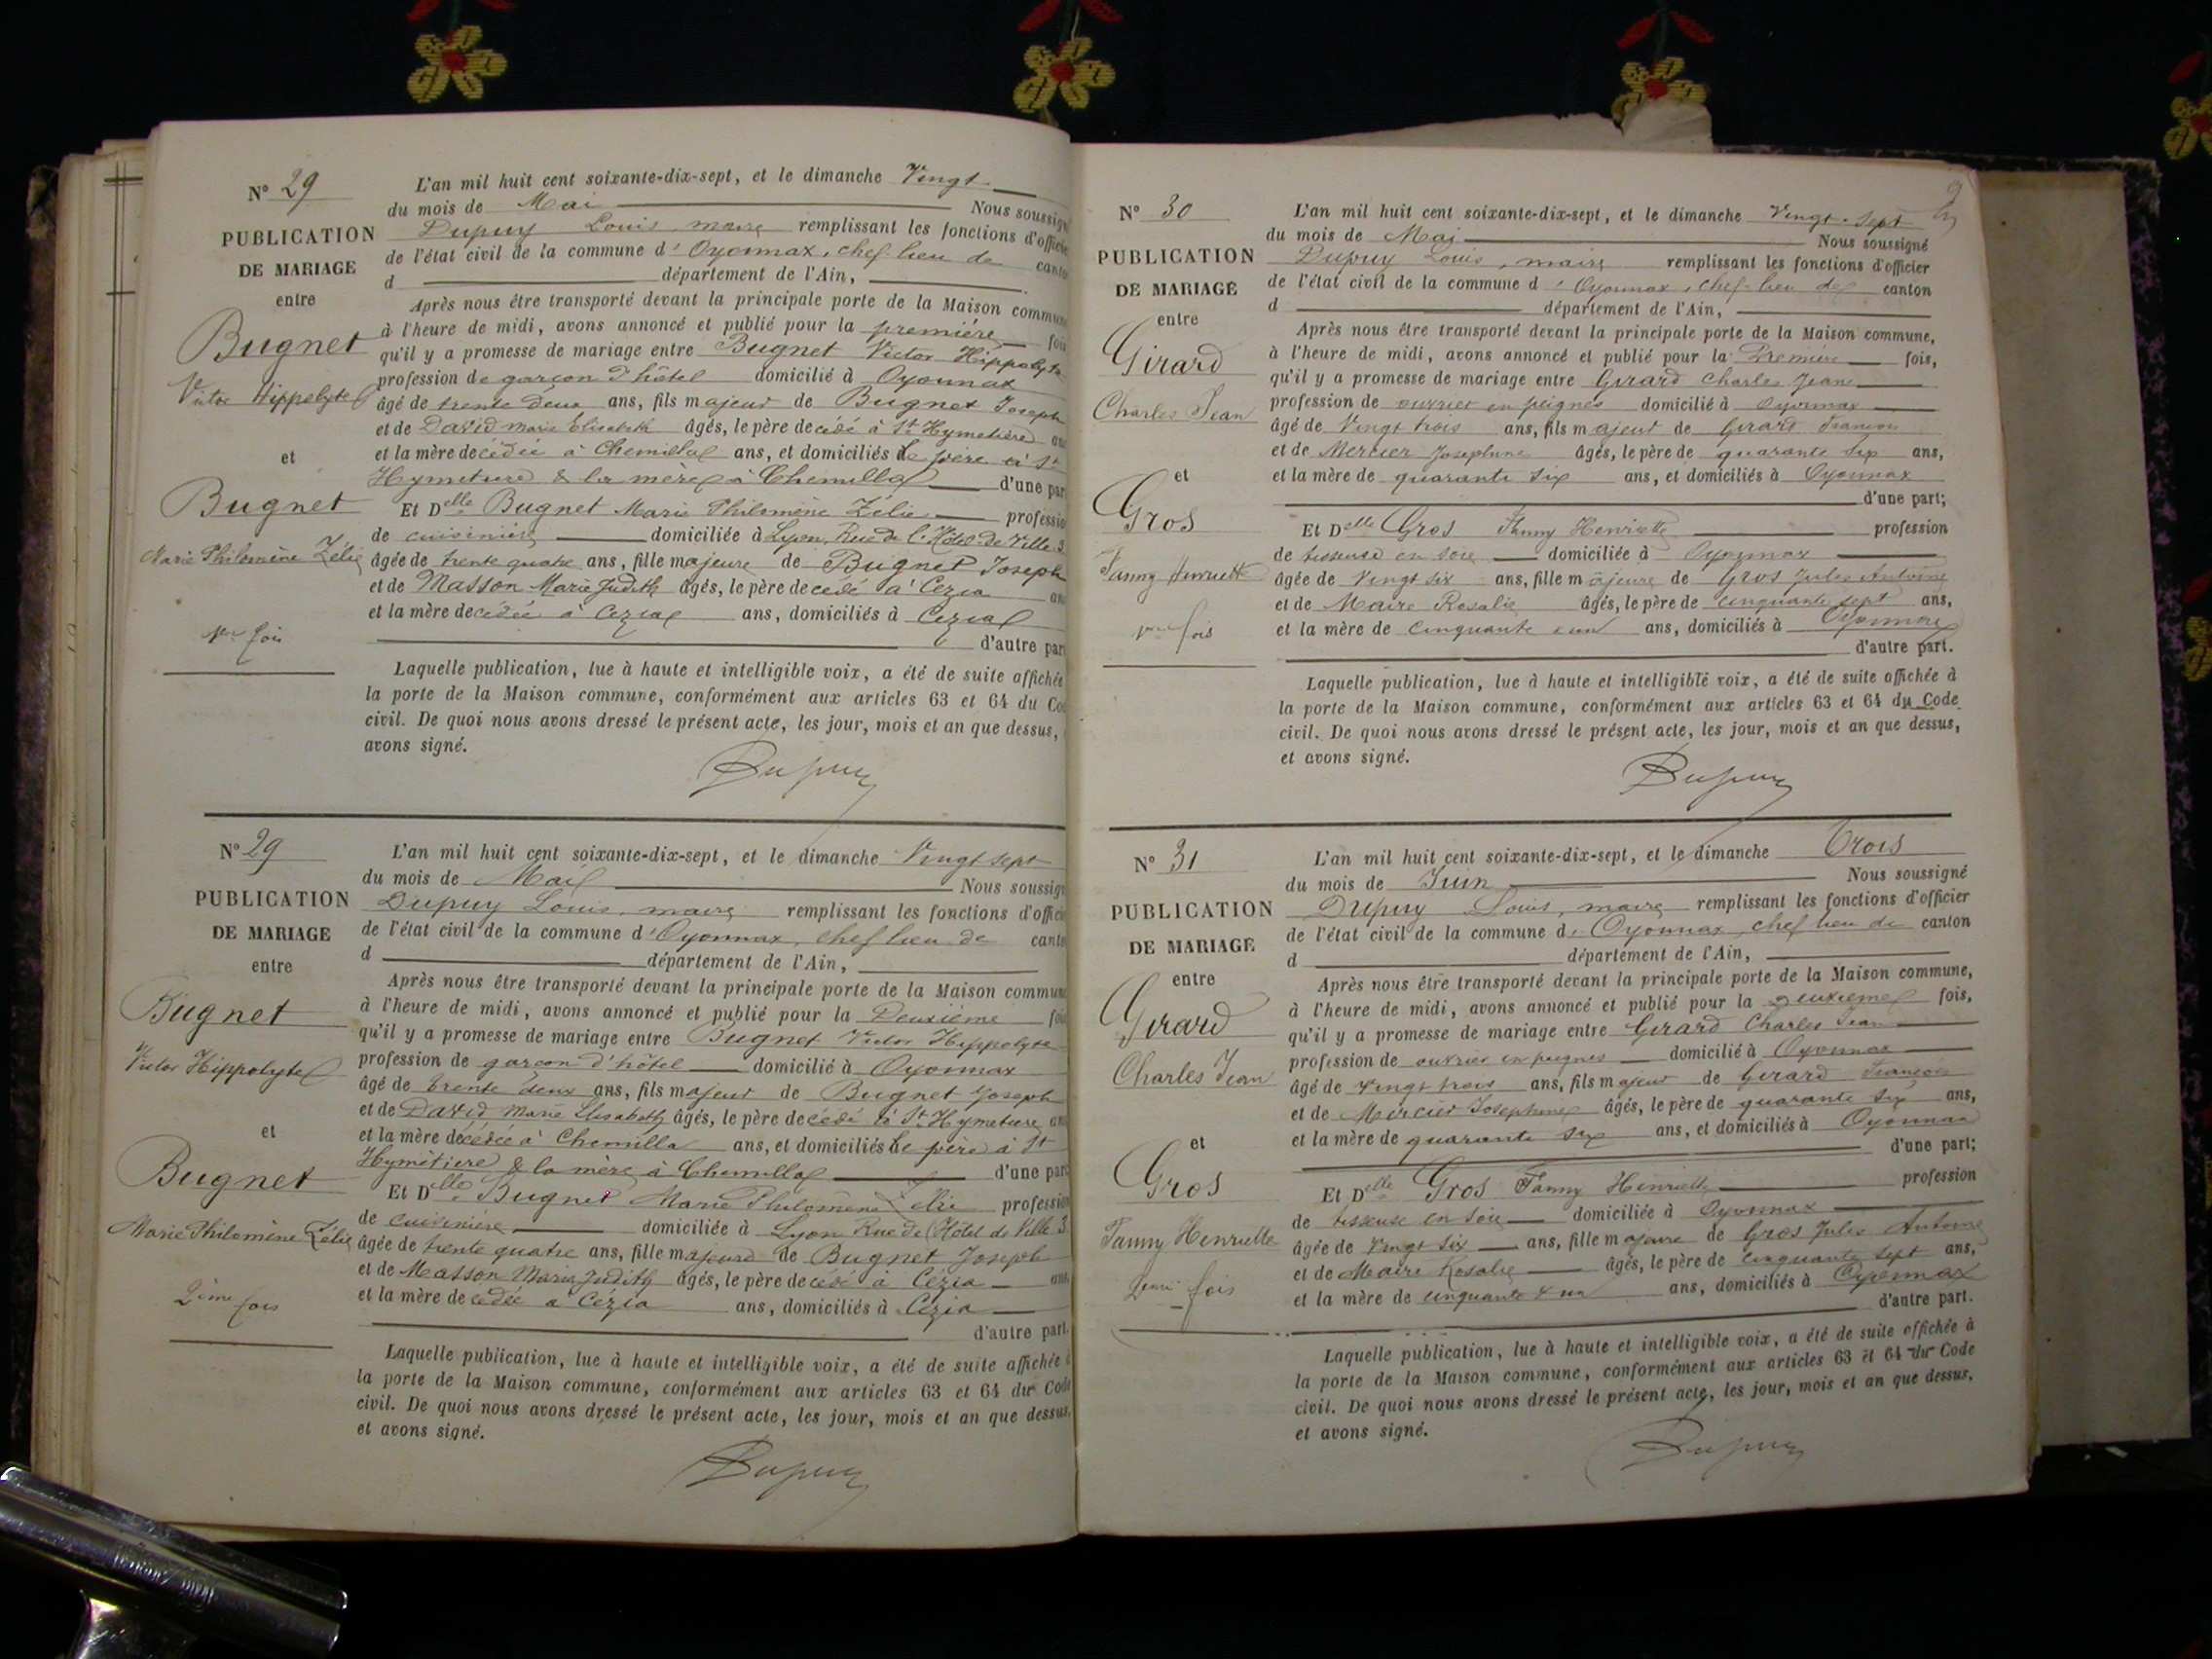 N° 29
PUBLICATION
DE MARIAGE
entre
Bugnet
Victor Hippolyte
et
Bugnet
Marie Philomène Zélie
1ère fois
L'an mil huit cent soixante-dix-sept, et le dimanche Vingt
du mois de Mai Nous soussigné
Dupuy Louis, maire remplissant les fonctions d'officie
de l'état civil de la commune d'Oyonnax, chef-lieu de canto
d département de l'Ain,
Après nous être transporté devant la principale porte de la Maison commune
à l'heure de midi, avons annoncé et publié pour la première fois
qu'il y a promesse de mariage entre Bugnet Victor Hippolyte
profession de garçon d'hôtel domicilié à Oyonnax
âgé de trente deux ans, fils majeur de Bugnet Joseph
et de David Marie Elisabeth âgés, le père decédé à St Hymetière ans
et la mère decédée à Chemilla ans, et domiciliés le père à St
Hymetière & la mère à Chemilla d'une par
Et Delle Bugnet Marie Philomène Zélie professio
de cuisinière domiciliée à Lyon, Rue de l'Hôtel de Ville 3
âgée de trente quatre ans, fille majeure de Bugnet Joseph
et de Masson Marie Judith âgés, le père decédé à Cézia ans
et la mère decédée à Cézia ans, domiciliés à Cézia
d'autre par
Laquelle publication, lue à haute et intelligible voix, a été de suite affichée
la porte de la Maison commune, conformément aux articles 63 et 64 du Co
civil. De quoi nous avons dressé le présent acte, les jour, mois et an que dessus,
avons signé.
Dupuy
N° 29
PUBLICATION
DE MARIAGE
entre
Bugnet
Victor Hippolyte
et
Bugnet
Marie Philomène Zélie
2ème fois
L'an mil huit cent soixante-dix-sept, et le dimanche Vingt sept
du mois de Mai Nous soussign
Dupuy Louis, maire remplissant les fonctions d'officie
de l'état civil de la commune d'Oyonnax, chef lieu de canto
d département de l'Ain,
Après nous être transporté devant la principale porte de la Maison commune
à l'heure de midi, avons annoncé et publié pour la Deuxième fois
qu'il y a promesse de mariage entre Bugnet Victor Hippolyte
profession de garçon d'hôtel domicilié à Oyonnax
âgé de trente deux ans, fils majeur de Bugnet Joseph
et de David Marie Elisabeth âgés, le père decédé à St Hymetiere ans
et la mère décédée à Chemilla ans, et domiciliés le père à St
Hymètiere & la mère à Chemilla d'une part
Et Delle Bugnet Marie Philomène Zélie profession
de cuisinière domiciliée à Lyon Rue de l'Hôtel de Ville 3
âgée de trente quatre ans, fille majeure de Bugnet Joseph
et de Masson Marie Judith âgés, le père decédé à Cézia ans
et la mère decédée à Cézia ans, domiciliés à Cézia
d'autre part.
Laquelle publication, lue à haute et intelligible voix, a été de suite affichée à
la porte de la Maison commune, conformément aux articles 63 et 64 du Code
civil. De quoi nous avons dressé le présent acte, les jour, mois et an que dessus,
et avons signé.
Dupuy
N° 30
PUBLICATION
DE MARIAGE
entre
Girard
Charles Jean
et
Gros
Fanny Henriette
1ère fois
L'an mil huit cent soixante-dix-sept, et le dimanche Vingt-sept
du mois de Mai Nous soussigné
Dupuy Louis, maire remplissant les fonctions d'officier
de l'état civil de la commune d'Oyonnax, chef-lieu de canton
d département de l'Ain,
Après nous être transporté devant la principale porte de la Maison commune,
à l'heure de midi, avons annoncé et publié pour la Première fois,
qu'il y a promesse de mariage entre Girard Charles Jean
profession de ouvrier en peignes domicilié à Oyonnax
âgé de Vingt trois ans, fils majeur de Girard François
et de Mercier Josephine âgés, le père de quarante six ans,
et la mère de quarante six ans, et domiciliés à Oyonnax
d'une part;
Et Delle Gros Fanny Henriette profession
de tisseuse en soie domiciliée à Oyonnax
âgée de Vingt six ans, fille majeure de Gros Jules Antoine
et de Maire Rosalie âgés, le père de cinquante sept ans,
et la mère de cinquante & un ans, domiciliés à Oyonnax
d'autre part.
Laquelle publication, lue à haute et intelligible voix, a été de suite affichée à
la porte de la Maison commune, conformément aux articles 63 et 64 du Code
civil. De quoi nous avons dressé le présent acte, les jour, mois et an que dessus,
et avons signé.
Dupuy
N° 31
PUBLICATION
DE MARIAGE
entre
Girard
Charles Jean
et
Gros
Fanny Henriette
2ème fois
L'an mil huit cent soixante-dix-sept, et le dimanche Trois
du mois de Juin Nous soussigné
Dupuy Louis, maire remplissant les fonctions d'officier
de l'état civil de la commune d'Oyonnax, chef lieu de canton
d département de l'Ain,
Après nous être transporté devant la principale porte de la Maison commune,
à l'heure de midi, avons annoncé et publié pour la Deuxieme fois,
qu'il y a promesse de mariage entre Girard Charles Jean
profession de ouvrier en peignes domicilié à Oyonnax
âgé de vingt trois ans, fils majeur de Girard François
et de Mercier Josephine âgés, le père de quarante six ans,
et la mère de quarante six ans, et domiciliés à Oyonnax
d'une part;
Et Delle Gros Fanny Henriette profession
de tisseuse en soie domiciliée à Oyonnax
âgée de Vingt six ans, fille majeure de Gros Jules Antoine
et de Maire Rosalie âgés, le père de cinquante sept ans,
et la mère de cinquante & un ans, domiciliés à Oyonnax
d'autre part.
Laquelle publication, lue à haute et intelligible voix, a été de suite affichée à
la porte de la Maison commune, conformément aux articles 63 et 64 du Code
civil. De quoi nous avons dressé le présent acte, les jour, mois et an que dessus,
et avons signé.
Dupuy